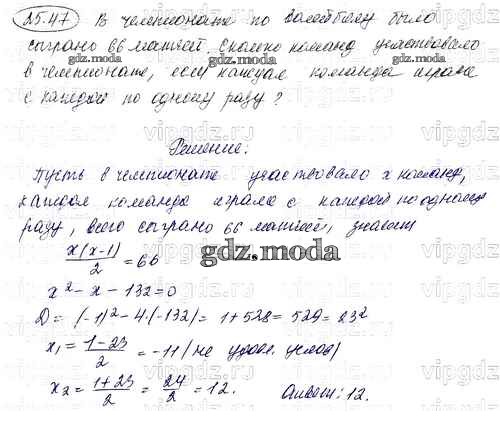 25.47 В чемпионате по волейболу было
сыграно 66 матчей. Сколько команд участвовало
в чемпионате, если каждая команда играла
с каждой по одному разу?
Решение.
Пусть в чемпионате участвовало x команд,
каждая команда играла с каждой по одному
разу, всего сыграно 66 матчей, значит
x(x-1)/2 = 66
gdz.moda
x² - x - 132 = 0
D = (-1)² - 4·(-132) = 1 + 528 = 529 = 23²
x₁ = (1-23)/2 = -11 (не удовл. услов)
x₂ = (1+23)/2 = 24/2 = 12. Ответ: 12.
gdz.moda
vipgdz.ru